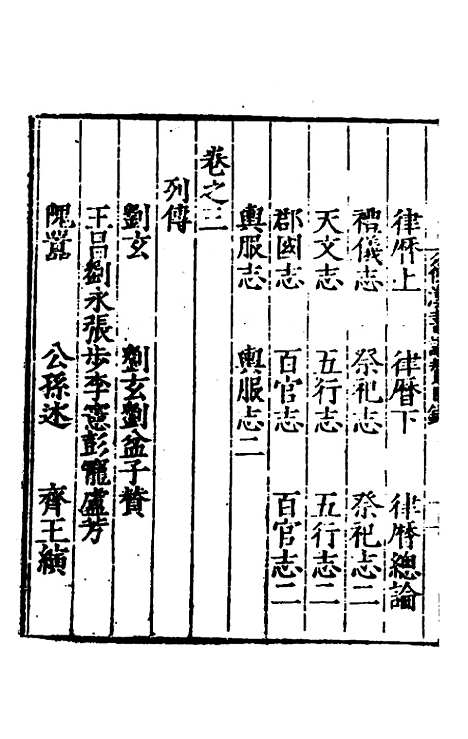 律厤上　律暦下　律厤總論
禮儀志　祭祀志　祭祀志二
天文志　五行志　五行志二
郡國志　百官志　百官志二
輿服志　輿服志二
卷之三
列傳
劉玄　劉玄劉盆子贊
王昌劉永張步李憲彭寵盧芳
隗囂　公孫述　齊王縯